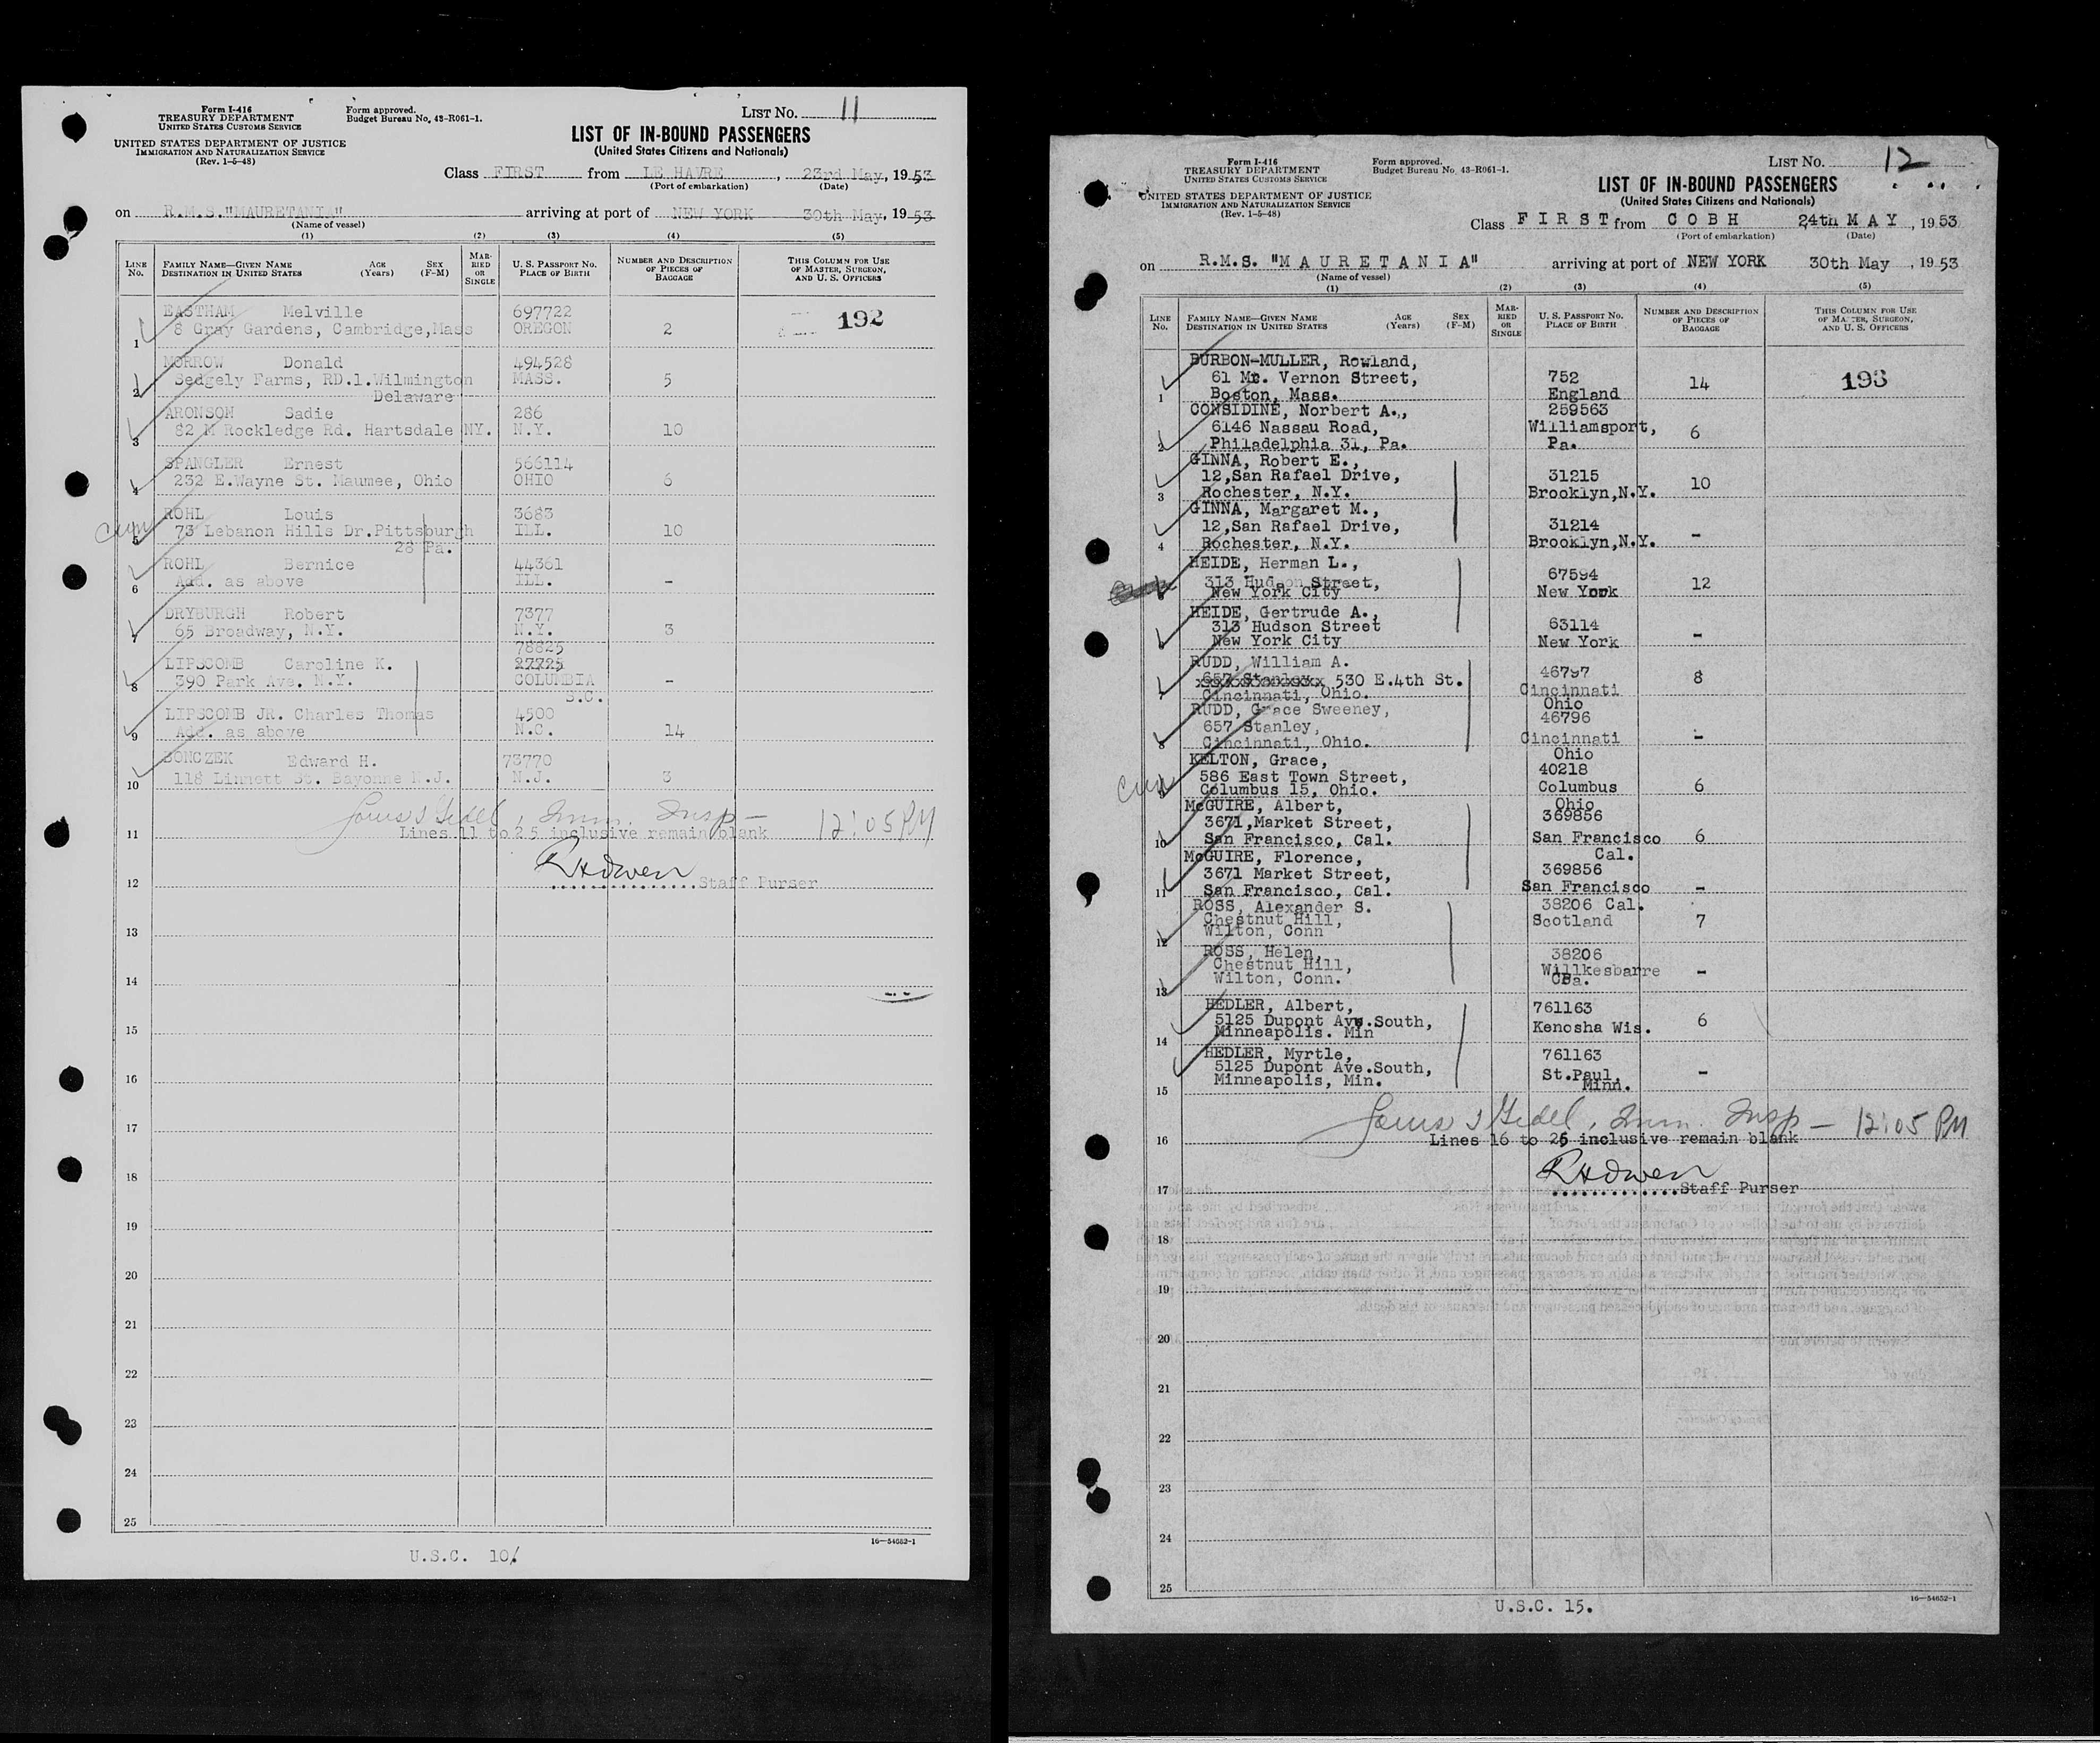 Form I-416
TREASURY DEPARTMENT
UNITED STATES CUSTOMS SERVICE
UNITED STATES DEPARTMENT OF JUSTICE
IMMIGRATION AND NATURALIZATION SERVICE
(Rev. 1-5-48)
Form approved.
Budget Bureau No. 43-R061-1.
LIST No. 11
LIST OF IN-BOUND PASSENGERS
(United States Citizens and Nationals)
Class FIRST from LE HAVRE, 23rd May, 1953
(Port of embarkation) (Date)
on R.M.S."MAURETANIA" arriving at port of NEW YORK 30th May, 1953
(Name of vessel)
(1) (2) (3) (4) (5)
LINE No. FAMILY NAME—GIVEN NAME DESTINATION IN UNITED STATES AGE (Years) SEX (F-M) MARRIED OR SINGLE U. S. PASSPORT No. PLACE OF BIRTH NUMBER AND DESCRIPTION OF PIECES OF BAGGAGE THIS COLUMN FOR USE OF MASTER, SURGEON, AND U. S. OFFICERS
EASTHAM Melville 697722 192
1 8 Gray Gardens, Cambridge,Mass OREGON 2
MORROW Donald 494528
2 Sedgely Farms, RD.1.Wilmington MASS. 5
Delaware
ARONSON Sadie 286
3 82 M Rockledge Rd. Hartsdale NY. N.Y. 10
SPANGLER Ernest 566114
4 232 E.Wayne St. Maumee, Ohio OHIO 6
ROHL Louis 3683
5 73 Lebanon Hills Dr.Pittsburgh ILL. 10
28 Pa.
ROHL Bernice 44361
6 Add. as above ILL. -
DRYBURGH Robert 7377
7 65 Broadway, N.Y. N.Y. 3
78825
LIPSCOMB Caroline K. 27725
8 390 Park Ave. N.Y. COLUMBIA -
S.C.
LIPSCOMB JR. Charles Thomas 4500
9 Add. as above N.C. 14
BONCZEK Edward H. 73770
10 118 Linnett St. Bayonne N.J. N.J. 3
Imm. Insp — 12:05 PM
11 Lines 11 to 25 inclusive remain blank
12 Staff Purser
13
14
15
16
17
18
19
20
21
22
23
24
25
16—54652-1
U.S.C. 10
Form I-416
TREASURY DEPARTMENT
UNITED STATES CUSTOMS SERVICE
UNITED STATES DEPARTMENT OF JUSTICE
IMMIGRATION AND NATURALIZATION SERVICE
(Rev. 1-5-48)
Form approved.
Budget Bureau No. 43-R061-1.
LIST No. 12
LIST OF IN-BOUND PASSENGERS
(United States Citizens and Nationals)
Class FIRST from COBH 24th MAY, 1953
(Port of embarkation) (Date)
on R.M.S. "MAURETANIA" arriving at port of NEW YORK 30th May, 1953
(Name of vessel)
(1) (2) (3) (4) (5)
LINE No. FAMILY NAME—GIVEN NAME DESTINATION IN UNITED STATES AGE (Years) SEX (F-M) MARRIED OR SINGLE U. S. PASSPORT No. PLACE OF BIRTH NUMBER AND DESCRIPTION OF PIECES OF BAGGAGE THIS COLUMN FOR USE OF MASTER, SURGEON, AND U. S. OFFICERS
BURBON-MULLER, Rowland,
61 Mt. Vernon Street, 752 14 193
1 Boston, Mass. England
CONSIDINE, Norbert A., 259563
6146 Nassau Road, Williamsport, 6
2 Philadelphia 31, Pa. Pa.
GINNA, Robert E.,
12,San Rafael Drive, 31215 10
3 Rochester, N.Y. Brooklyn,N.Y.
GINNA, Margaret M.,
12,San Rafael Drive, 31214
4 Rochester, N.Y. Brooklyn,N.Y. -
HEIDE, Herman L.,
313 Hudson Street, 67594 12
New York City New York
HEIDE, Gertrude A.,
313 Hudson Street 63114
New York City New York -
RUDD, William A. 46797
657 Stanley 530 E.4th St. 8
7 Cincinnati, Ohio. Cincinnati Ohio
RUDD, Grace Sweeney, 46796
657 Stanley,
8 Cincinnati, Ohio. Cincinnati Ohio -
KELTON, Grace, 40218
586 East Town Street, Columbus 6
9 Columbus 15, Ohio. Ohio
McGUIRE, Albert, 369856
3671,Market Street,
10 San Francisco, Cal. San Francisco Cal. 6
McGUIRE, Florence, 369856
3671 Market Street,
11 San Francisco, Cal. San Francisco Cal. -
ROSS, Alexander S. 38206
Chestnut Hill, Scotland 7
12 Wilton, Conn
ROSS, Helen, 38206
Chestnut Hill, Willkesbarre -
13 Wilton, Conn. Pa.
HEDLER, Albert, 761163
5125 Dupont Ave.South, Kenosha Wis. 6
14 Minneapolis. Min
HEDLER, Myrtle, 761163
5125 Dupont Ave.South, St.Paul, -
15 Minneapolis, Min. Minn.
Imm. Insp — 12:05 PM
16 Lines 16 to 25 inclusive remain blank
17 Staff Purser
18
19
20
21
22
23
24
25
16—54652-1
U.S.C. 15.